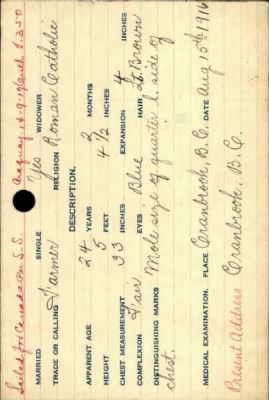 Sailed for Canada on S.S. Aquay
MARRIED SINGLE Yes WIDOWER
TRADE OR CALLING Farmer RELIGION Roman Catholic
DESCRIPTION.
APPARENT AGE 24 YEARS 2 MONTHS
HEIGHT 5 FEET 4 1/2 INCHES
CHEST MEASUREMENT 33 INCHES EXPANSION 4 INCHES
COMPLEXION Fair EYES Blue HAIR Lt. Brown
DISTINGUISHING MARKS Mole size of quarter l. side of
chest.
MEDICAL EXAMINATION. PLACE Cranbrook, B.C. DATE Aug 15th 1916
Present Address Cranbrook, B.C.